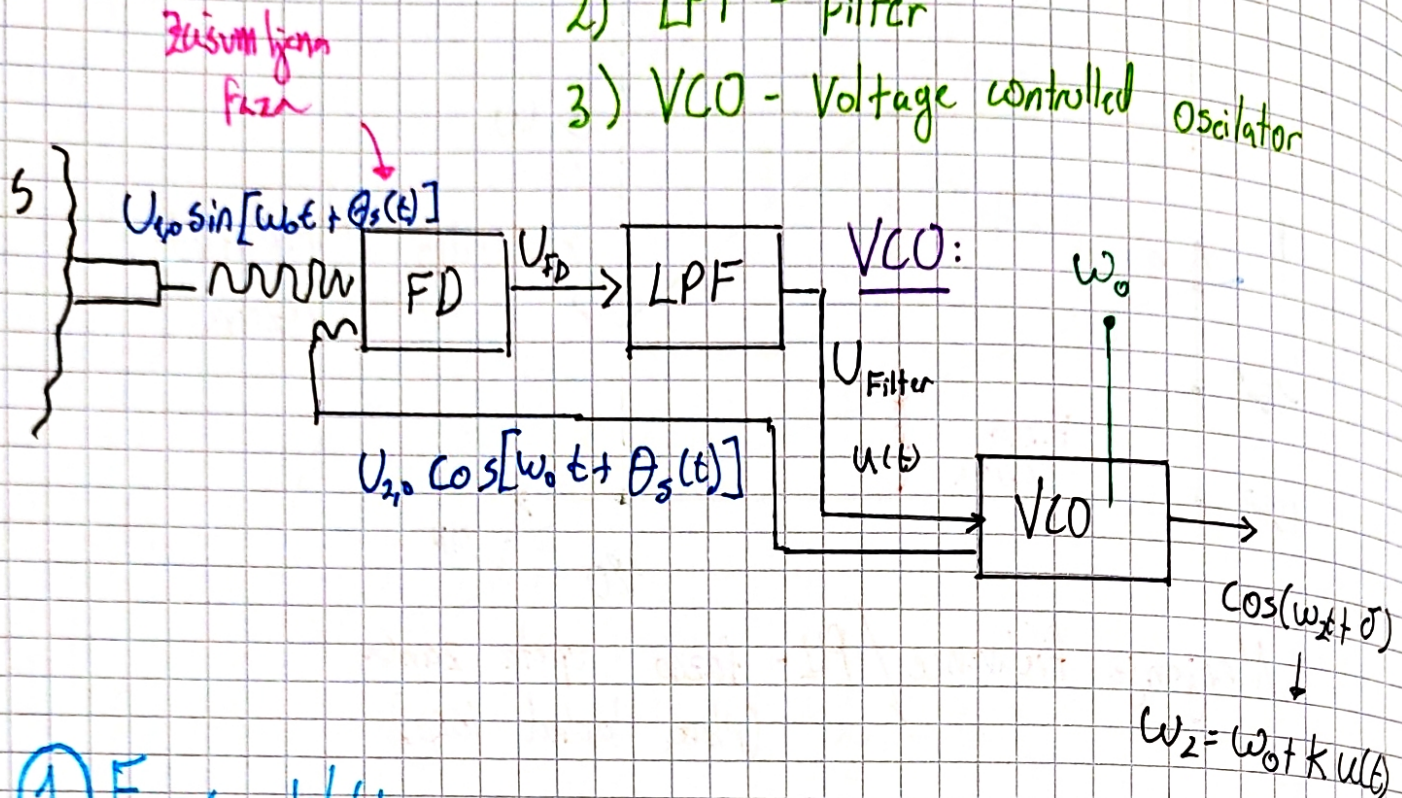 Zašumljena
faza
2) LPF - Filter
3) VCO - Voltage controlled Oscilator
S
U₁,₀ sin[ω₀t + θₛ(t)]
FD
U_FD
LPF
VCO:
ω₀
U_Filter
u(t)
U₂,₀ cos[ω₀t + θₛ(t)]
VCO
cos(ω₂t+δ)
↓
ω₂ = ω₀ + k u(t)
①